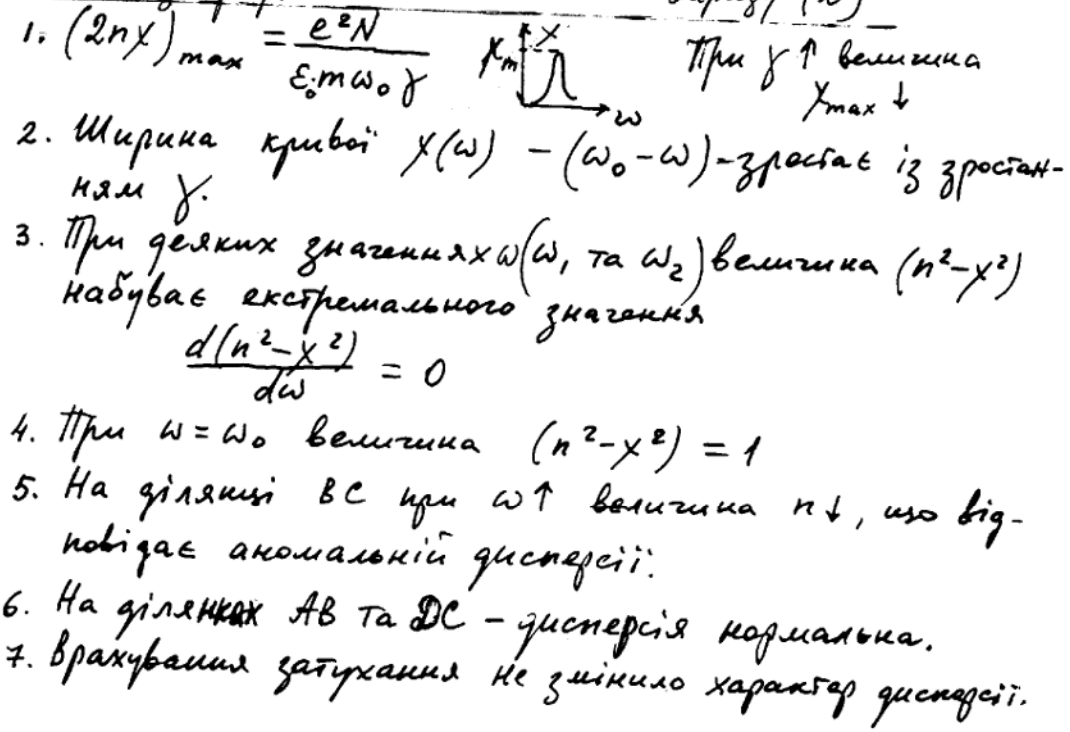 1. (2nχ)max = e²N / ε₀mω₀γ   χm χ ω   При γ ↑ величина
χmax ↓
2. Ширина кривої χ(ω) – (ω₀–ω)–зростає із зростан-
ням γ.
3. При деяких значеннях ω(ω₁ та ω₂) величина (n²–χ²)
набуває екстремального значення
d(n²–χ²) / dω = 0
4. При ω = ω₀ величина (n²–χ²) = 1
5. На ділянці ВС при ω↑ величина n↓, що від-
повідає аномальній дисперсії.
6. На ділянках АВ та DC – дисперсія нормальна.
7. Врахування затухання не змінило характер дисперсії.